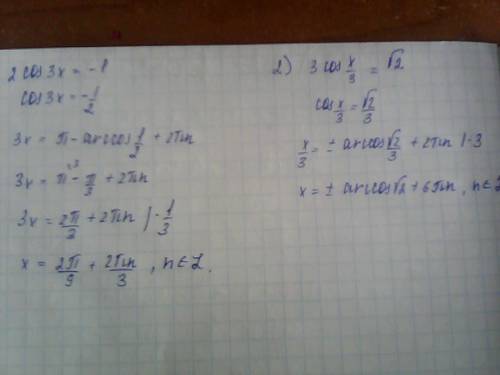 2 cos 3x = -1
cos 3x = -1/2
3x = π - arccos 1/2 + 2πn
3x = π^3 - π/3 + 2πn
3x = 2π/3 + 2πn | · 1/3
x = 2π/9 + 2πn/3 , n ∈ Z.
2) 3 cos x/3 = √2
cos x/3 = √2/3
x/3 = ± arccos √2/3 + 2πn | · 3
x = ± arccos √2 + 6πn , n ∈ Z